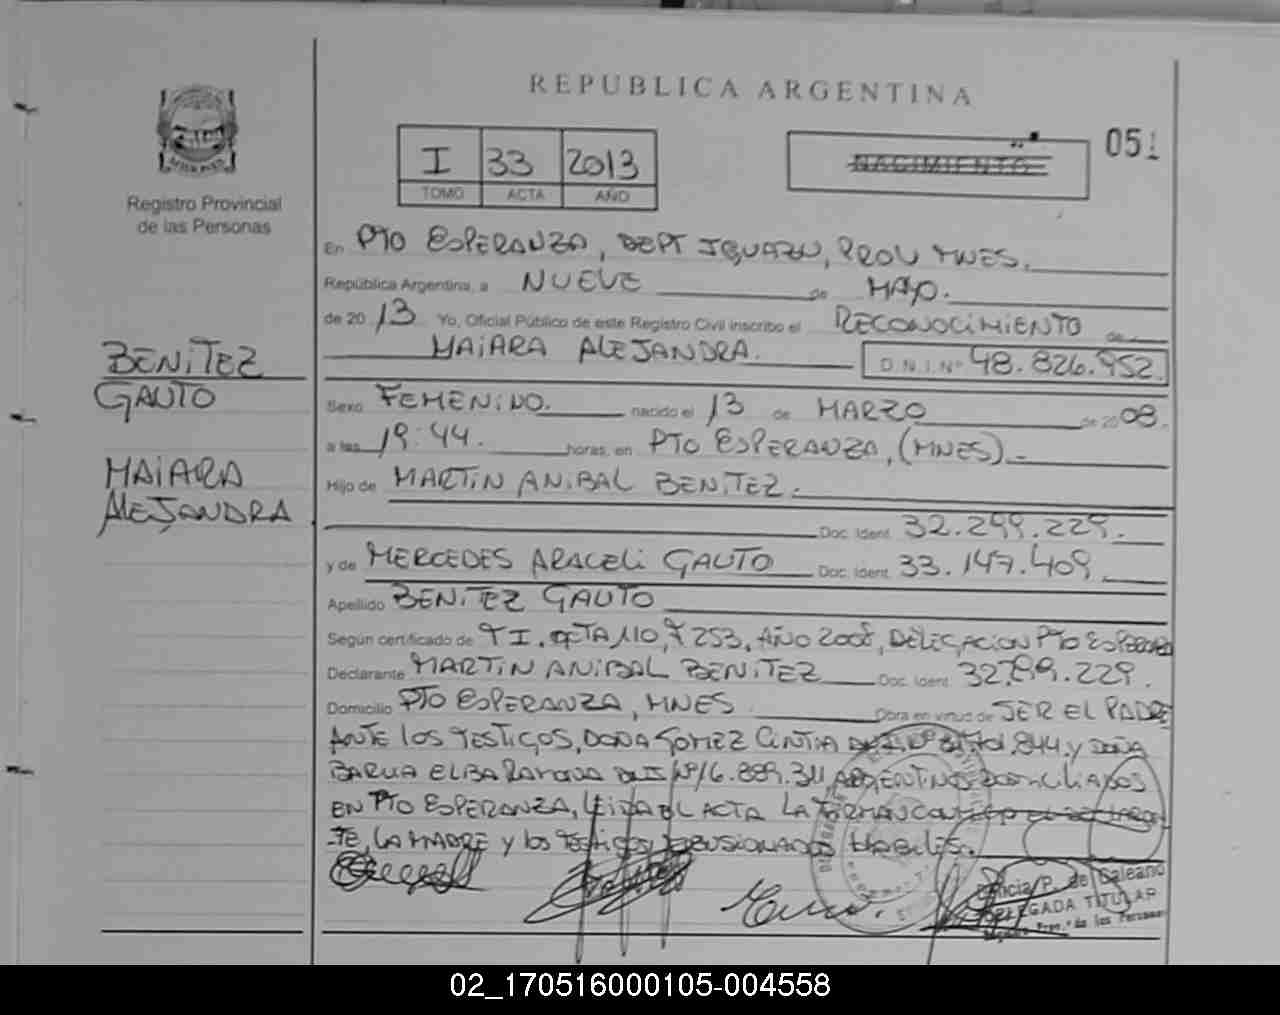 REPUBLICA ARGENTINA
051
I 33 2013
TOMO ACTA AÑO
NACIMIENTO
Registro Provincial
de las Personas
En PTO ESPERANZA, DEPT IGUAZU, PROV MNES.
República Argentina, a NUEVE de MAYO.
de 2013 Yo, Oficial Público de este Registro Civil inscribo el RECONOCIMIENTO de
MAIARA ALEJANDRA. D.N.I. Nº 48.826.952.
BENITEZ
GAUTO
MAIARA
ALEJANDRA
Sexo FEMENINO. nacido el 13 de MARZO de 2008.
a las 19:44. horas, en PTO ESPERANZA, (MNES).-
Hijo de MARTIN ANIBAL BENITEZ.
Doc. Ident. 32.299.229.
y de MERCEDES ARACELI GAUTO Doc. Ident. 33.147.409
Apellido BENITEZ GAUTO
Según certificado de T I, ACTA 110, F 253, AÑO 2008, DELEGACION PTO ESPERANZA
Declarante MARTIN ANIBAL BENITEZ Doc. Ident. 32.299.229.
Domicilio PTO ESPERANZA, MNES Obra en virtud de SER EL PADRE
ANTE LOS TESTIGOS, DOÑA GOMEZ CINTIA 844 y DOÑA
BARUA ELBA RAMONA DNI Nº 16.889.311 ARGENTINOS DOMICILIADOS
EN PTO ESPERANZA, LEIDA EL ACTA LA FIRMAN CONMIGO
TE, LA MADRE y los TESTIGOS HABILES.
Galeano
DELEGADA TITULAR
Registro Prov. de las Personas
02_170516000105-004558